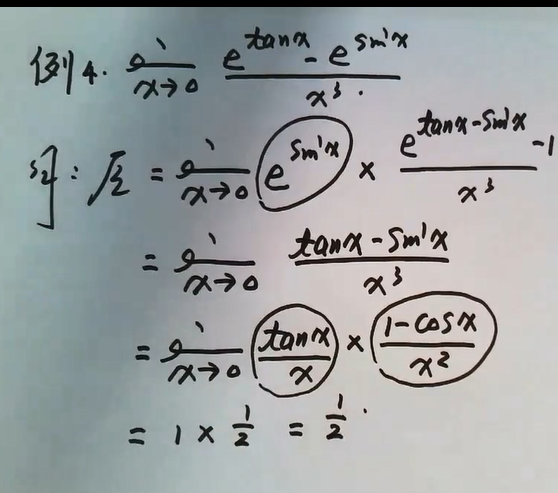 例4. lim x→0 (e^{tanx} - e^{sinx}) / x³.
解: 原 = lim x→0 e^{sinx} × (e^{tanx-sinx} - 1) / x³
= lim x→0 (tanx - sinx) / x³
= lim x→0 tanx / x × (1-cosx) / x²
= 1 × 1/2 = 1/2.